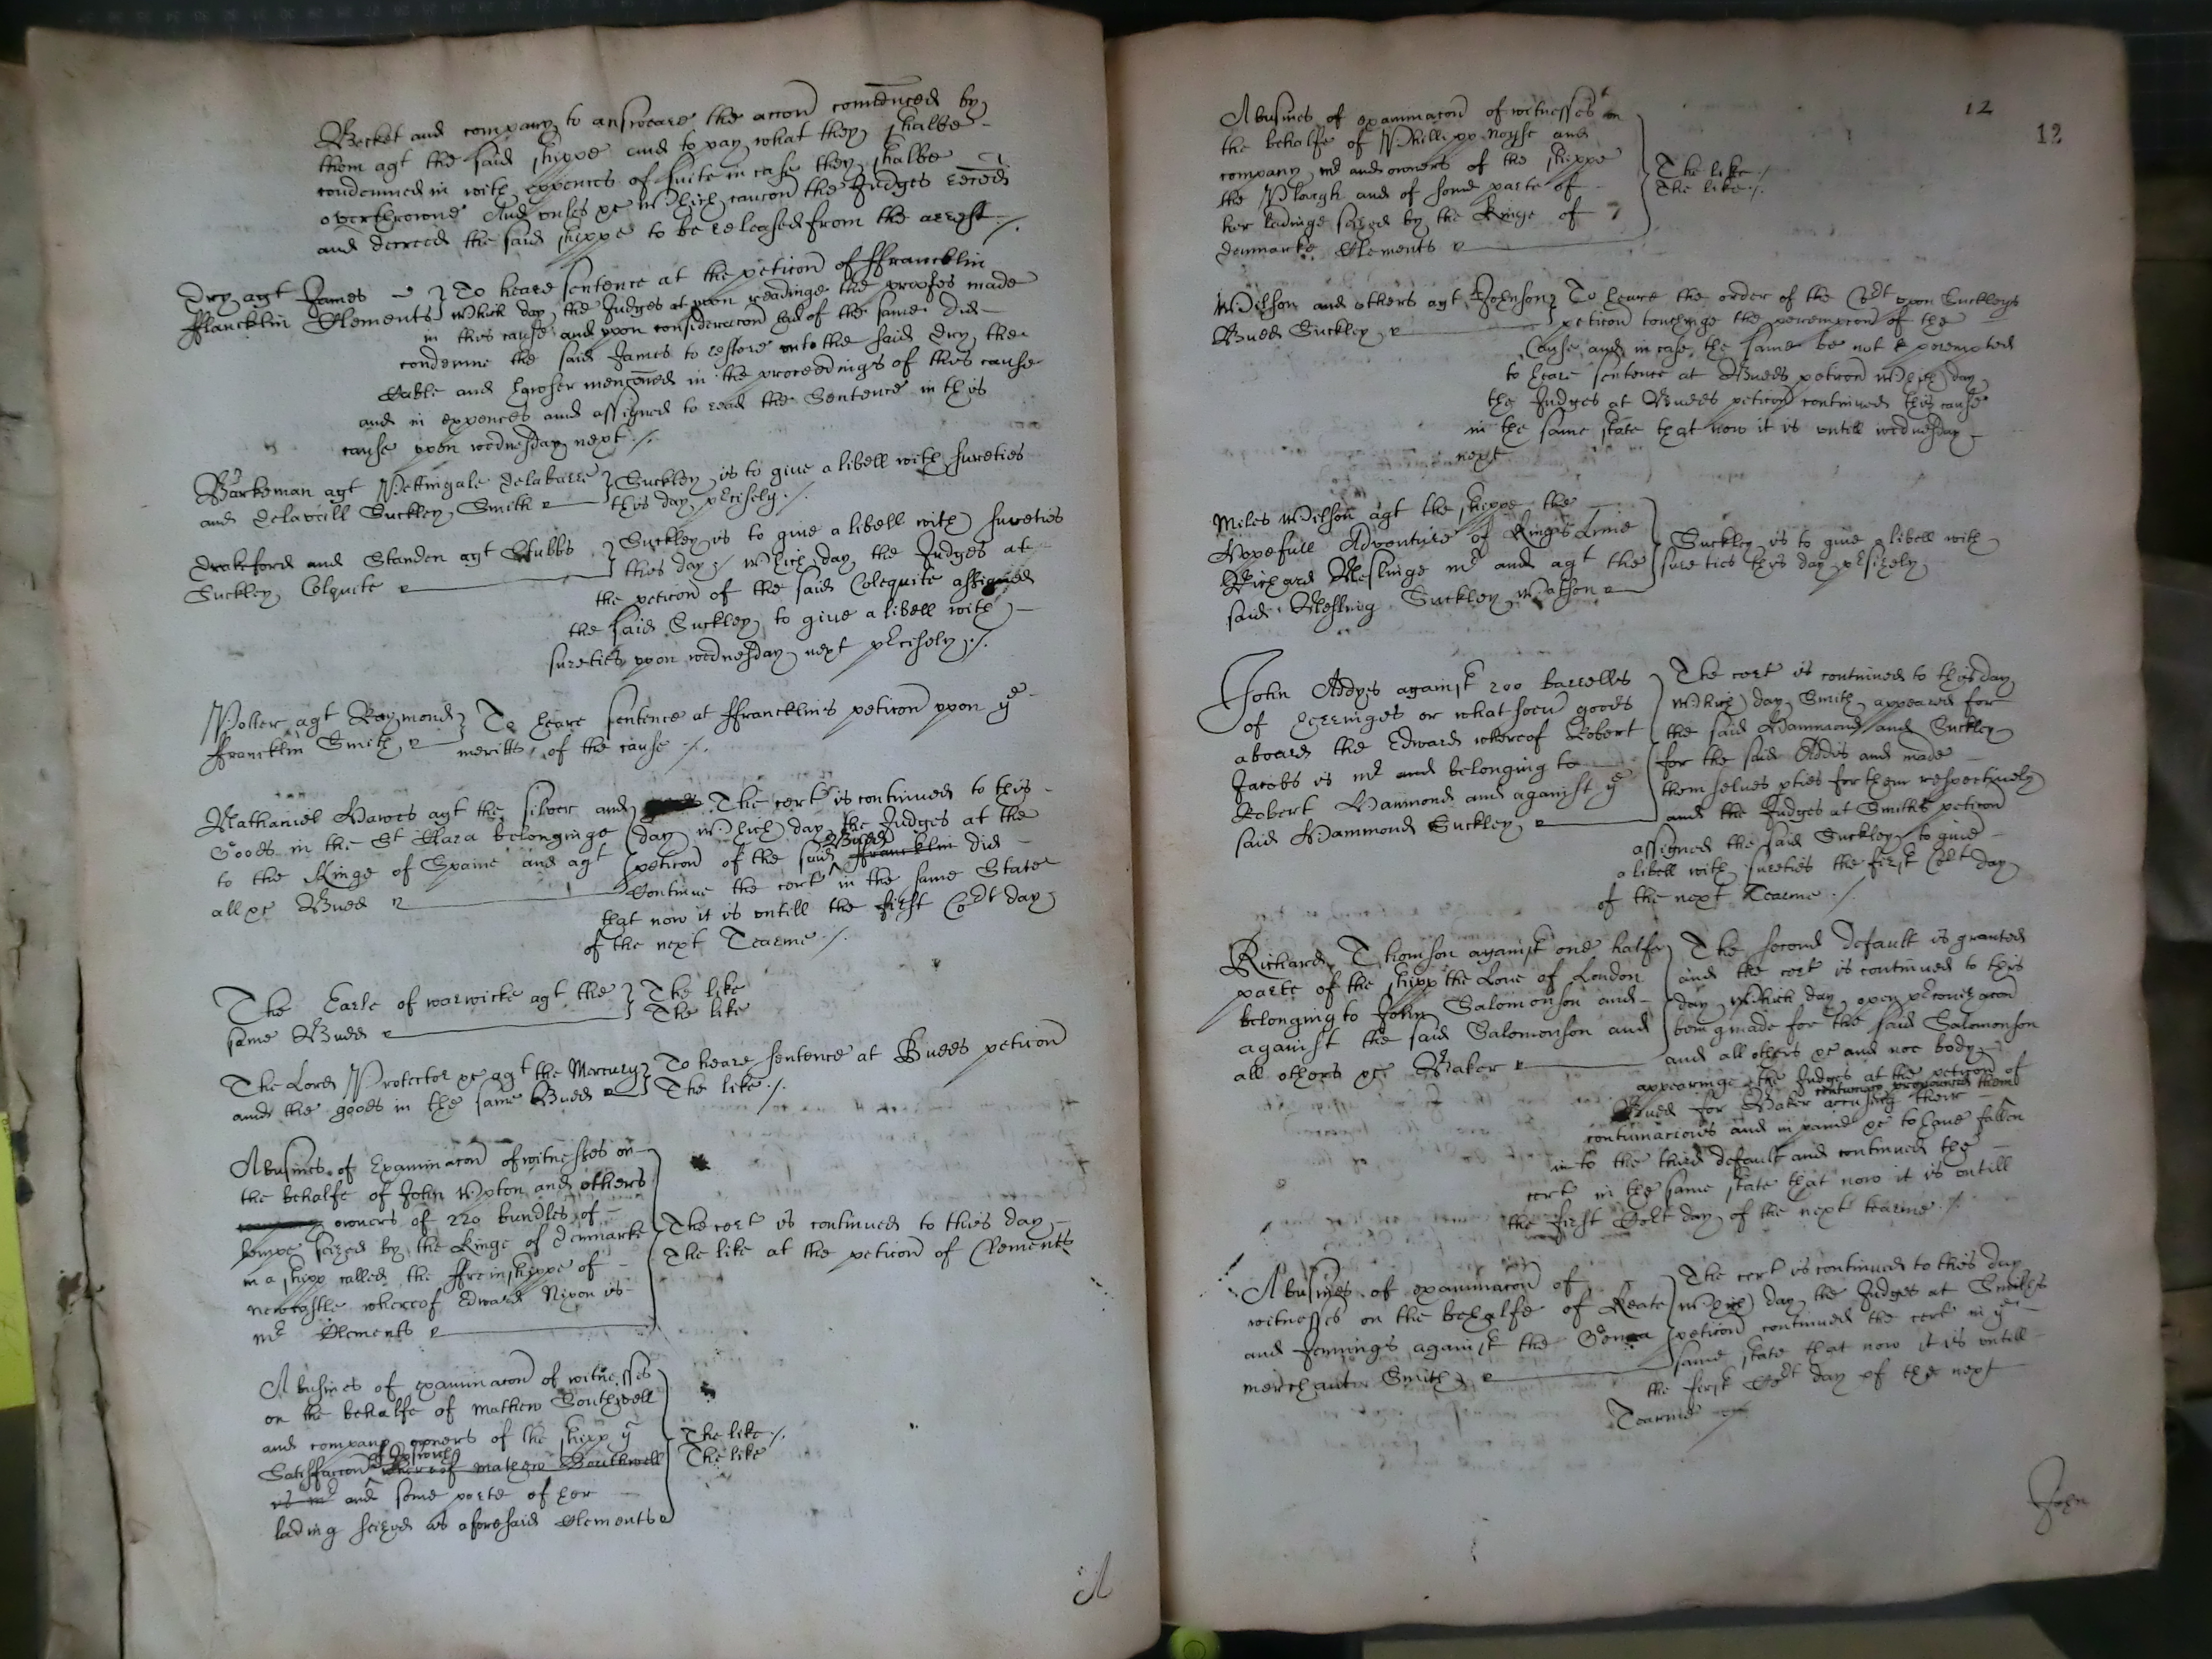 Becket and company to answeare the accon comenced by
them agt the said shippe and to pay what they shalbe
condemned in with expences of suite in case they shalbe
overthrowne And unles &c Which caucon the Judges
and decreed the said shippe to be released from the arrest ./.
Dry agt James
Francklin Clements
To heare sentence at the peticon of ffrancklin
Which day the Judges at upon readinge the proofes made
in this cause and upon consideracon had of the same did
condemne the said James to restore unto the said Dry the
Cable and hawser menconed in the proceedings of this cause
and in expences and assigned to read the Sentence in this
cause upon wednesday next ./.
Barkeman agt Pettingale Delabarre
and Delavill Suckley Smith
Suckley is to give a libell with sureties
this day precisely ./.
Drakeford and Standen agt Stubbs
Suckley Colquite
Suckley is to give a libell with sureties
this day ./. Which day the Judges at
the peticon of the said Colequite assigned
the said Suckley to give a libell with
sureties upon wednesday next precisely ./.
Potter agt Raymond
ffrancklin Smith
To heare sentence at ffrancklins peticon upon ye
meritts of the cause ./.
Nathaniel Hawes agt the silver and
Goods in the St Clara belonginge
to the Kinge of Spaine and agt
all &c Budd
The cert is continued to this
day Which day the Judges at the
peticon of the said Budd ffrancklin did
Continue the cert in the same State
that now it is untill the first Cort day
of the next Tearme ./.
The Earle of warwicke agt the
same Budd
The like
The like
The Lord Protector &c agt the Mercury
and the goods in the same Budd
To heare sentence at Budds peticon
The like ./.
A busines of Examinacon of witnesses on
the behalfe of John Upton and others
owners of 220 bundles of
hempe seized by the Kinge of Denmarke
in a shipp called the ffreindshippe of
newcastle whereof Edward Nixon is
mr Clements
The cert is continued to this day
The like at the peticon of Clements
A busines of examinacon of witnesses
on the behalfe of Mathew Southwell
and company owners of the shipp ye
Satisfaccon whereof Mathew Southwell
is mr and some parte of her
lading seized as aforesaid Clements
The like ./.
The like
A
12
12
A busines of examinacon of witnesses on
the behalfe of Phillipp Noyse and
company and owners of the shippe
the Plough and of some parte of
her ladinge seized by the Kinge of
denmarke Clements
The like ./.
The like ./.
Wilson and others agt Johnson
Budd Suckley
To heare the order of the Cort upon Suckleys
peticon touchinge the perempcon of the
Cause and in case the same be not perempted
to heare sentence at Budds peticon Which day
the Judges at Budds peticon continued this cause
in the same state that now it is untill wednesday
next
Miles Wilson agt the shippe the
Hopefull Adventure of Kings Linne
Richard Meslinge mr and agt the
said Mesling Suckley Watson
Suckley is to give a libell with
sureties this day precisely
John Addys against 200 barrells
of herringes or what soevr goods
aboard the Edward whereof Robert
Jacobs is mr and belonging to
Robert Hammond and against ye
said Hammond Suckley
The cert is continued to this day
Which day Smith appeared for
the said Hammond and Suckley
for the said Addis and made
themselves pties for them respectively
and the Judges at Smiths peticon
assigned the said Suckley to give
a libell with sureties the first Cort day
of the next Tearme ./.
Richard Thomson against one halfe
parte of the shipp the Love of London
belonging to John Salomonson and
against the said Salomonson and
all others &c Baker
The second default is granted
and the cert is continued to this
day Which day open preconizacon
being made for the said Salomonson
and all others &c and noe body
appearinge the Judges at the peticon of
Budd for Baker accusing their contumacy pronounced them
contumacious and in paine &c to have fallen
into the third default and continued the
cert in the same state that now it is untill
the first Cort day of the next tearme ./.
A busines of examinacon of
witnesses on the behalfe of Keate
and Jennings against the Genoa
merchant Smith
The cert is continued to this day
Which day the Judges at Smiths
peticon continued the cert in ye
same state that now it is untill
the first Cort day of the next
Tearme
John